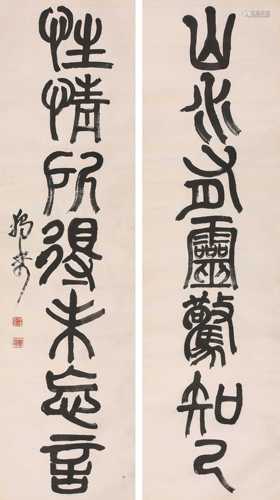 山水有靈驚知己
性情所得未忘言